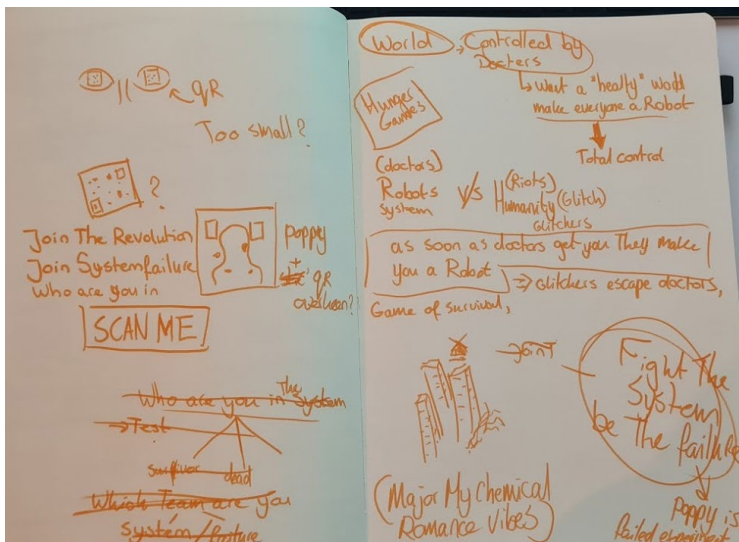 QR
Too small?
?
Join The Revolution
Join Systemfailure
Who are you in
SCAN ME
poppy
+
QR
overheen?
Who are you in The System
→ Test
survivor dead
Which Team are you
System/
World, Controlled by
Docters
↳ Want a "healty" world
make everyone a Robot
Total control
Hunger
Games
(doctors)
Robots
system
V/S
(Riots)
Humanity (Glitch)
Glitchers
as soon as doctors get you They make
you a Robot
⇒ Glitchers escape doctors,
Game of survival,
→ Joint
Fight The
System
be The failure
Poppy is
failed experiment
(Major My Chemical
Romance Vibes)